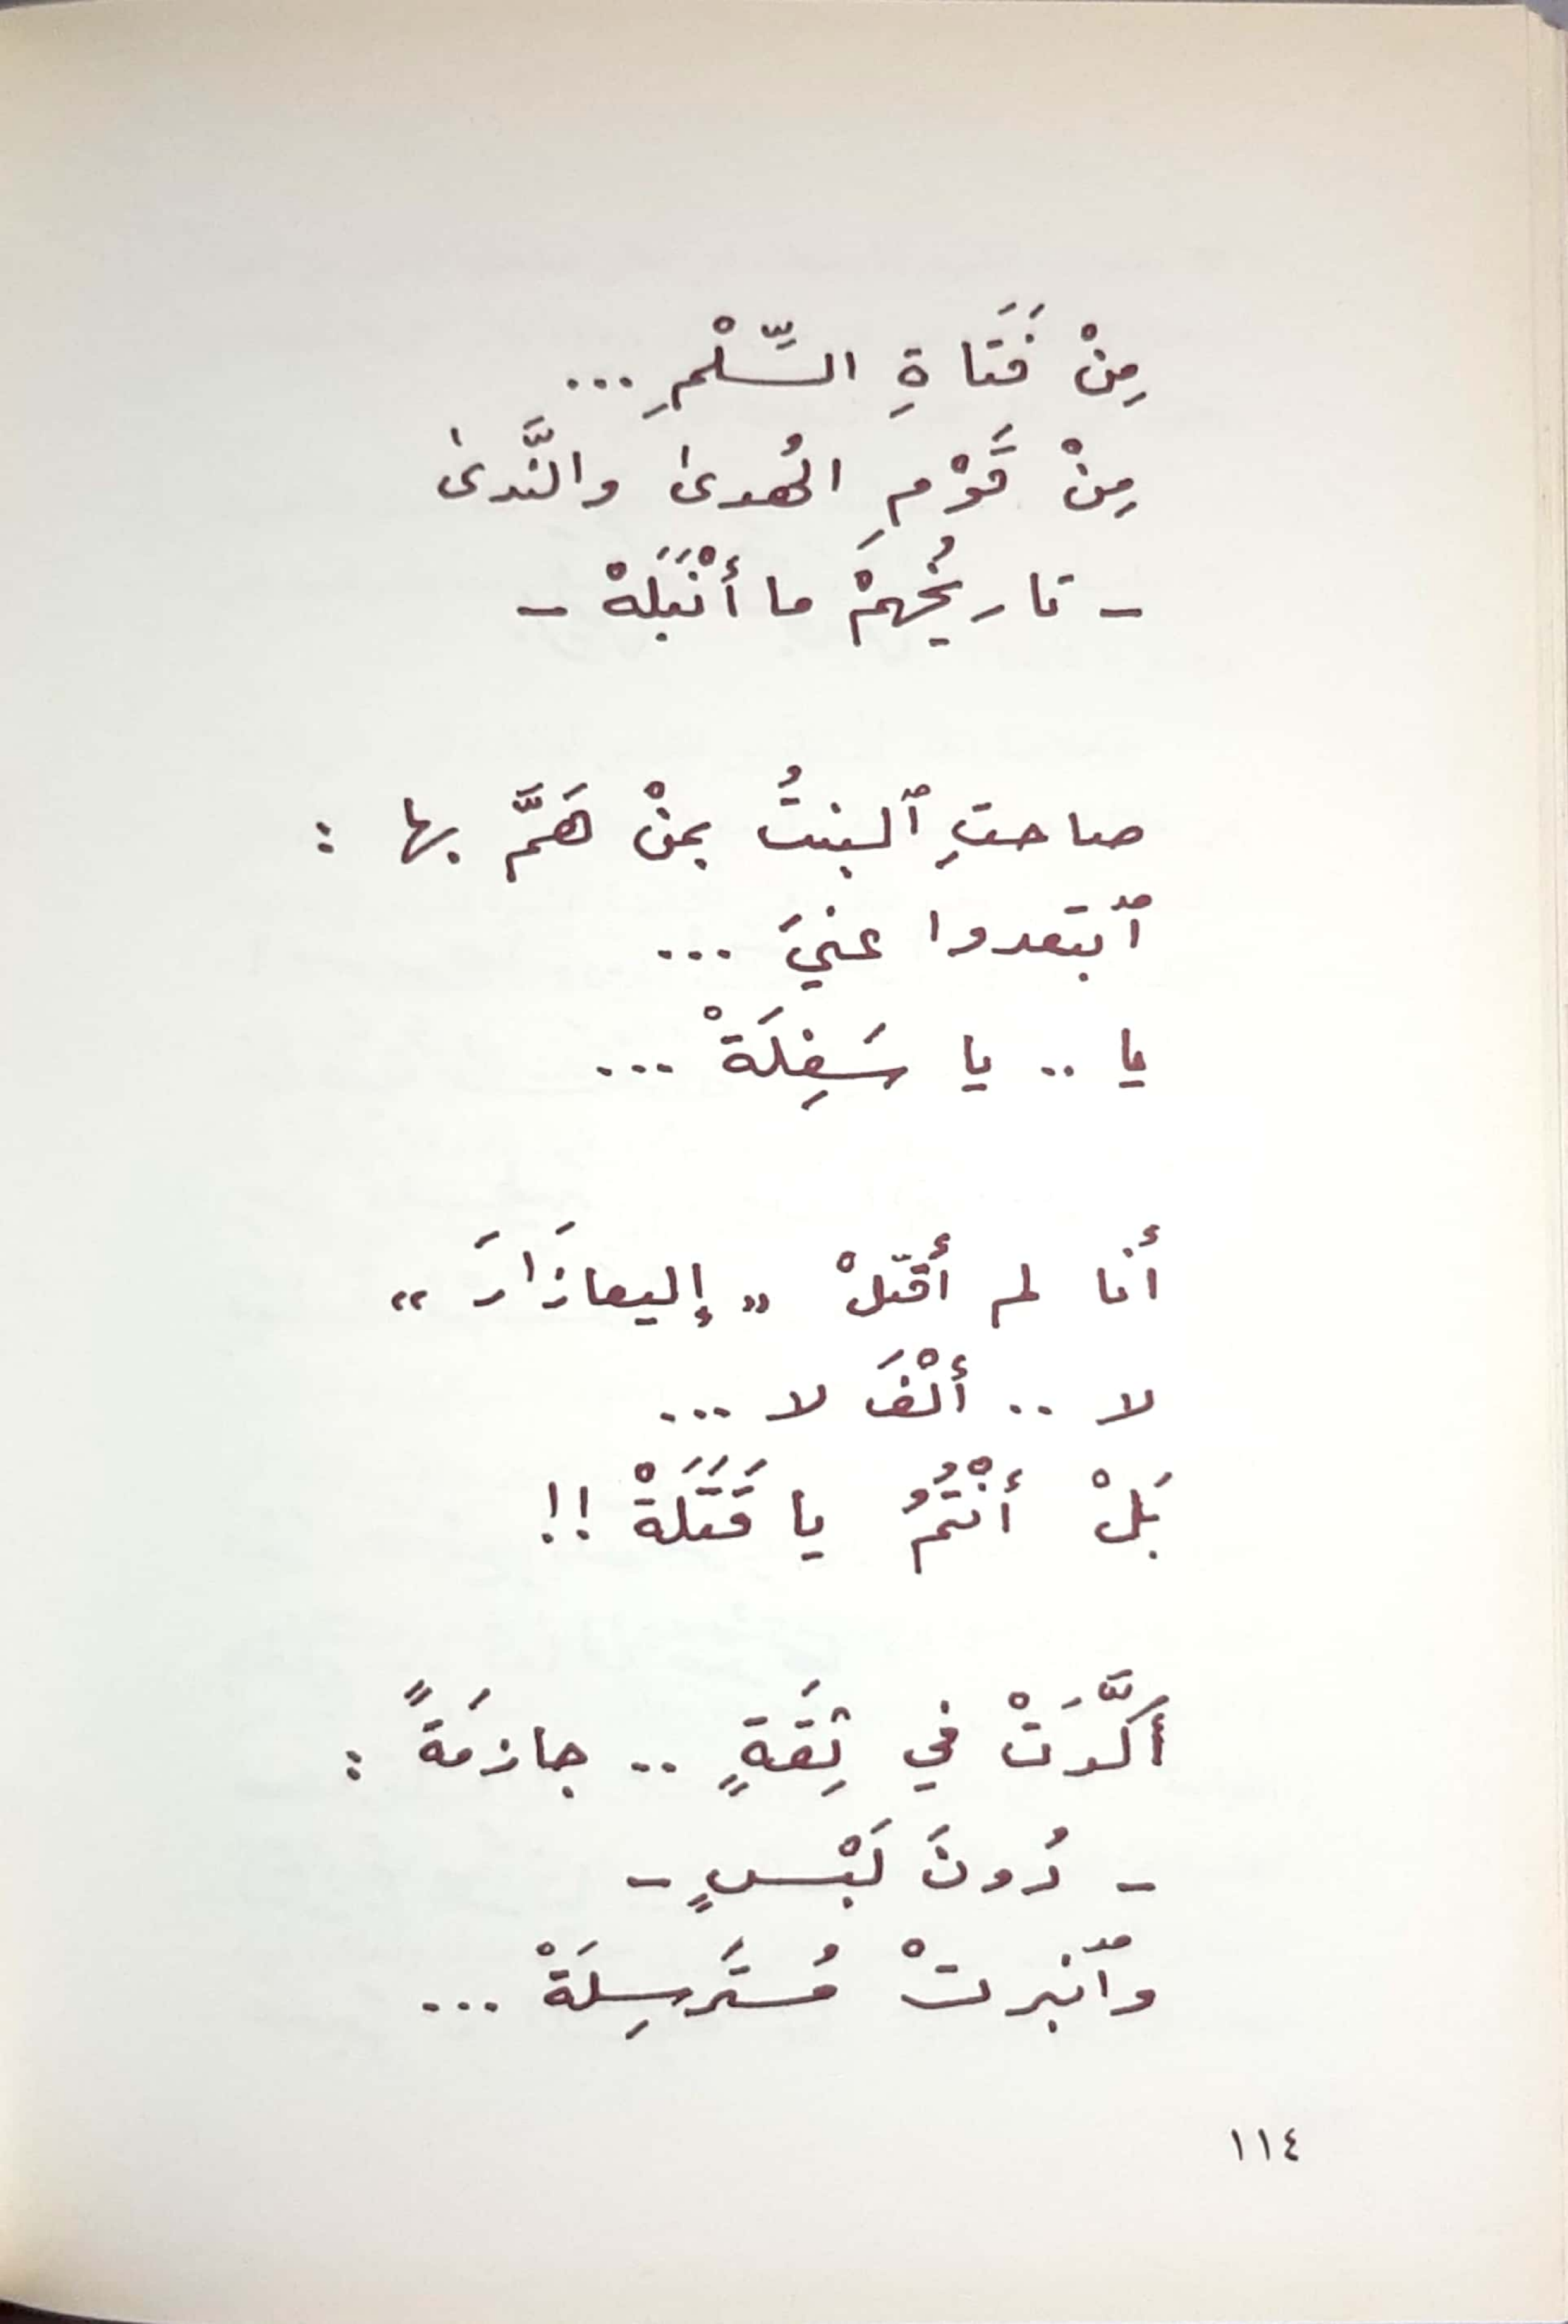 مِنْ فَتَاةِ السِّلْمِ ...
مِنْ قَوْمِ الهُدىٰ والنَّدىٰ
- تاريخُهمْ ما أنْبَلَهْ -
صاحتِ ٱلبنتُ بمنْ هَمَّ بها :
ٱبتعدوا عنيَ ...
يا .. يا سَفِلَةْ ...
أَنا لم أَقتلْ " إليعازَارَ "
لا .. أَلْفَ لا ...
بَلْ أَنْتُمُ يا قَتَلَةْ !!
أَكَّدَتْ في ثِقَةٍ .. جازمَةً :
- دُونَ لَبْسٍ -
وٱنبرتْ مُستَرسِلَةْ ...
١١٤